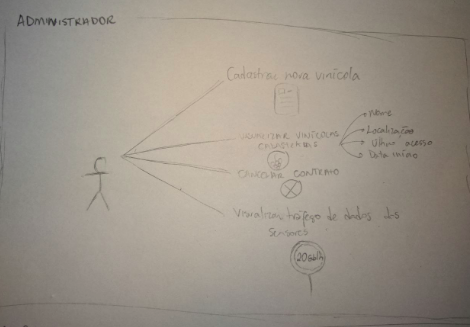 ADMINISTRADOR
Cadastrar nova vinícola
VINÍCOLAS
CADASTRADAS
nome
Localização
Último acesso
Data início
CANCELAR CONTRATO
Visualizar tráfego de dados dos
Sensores